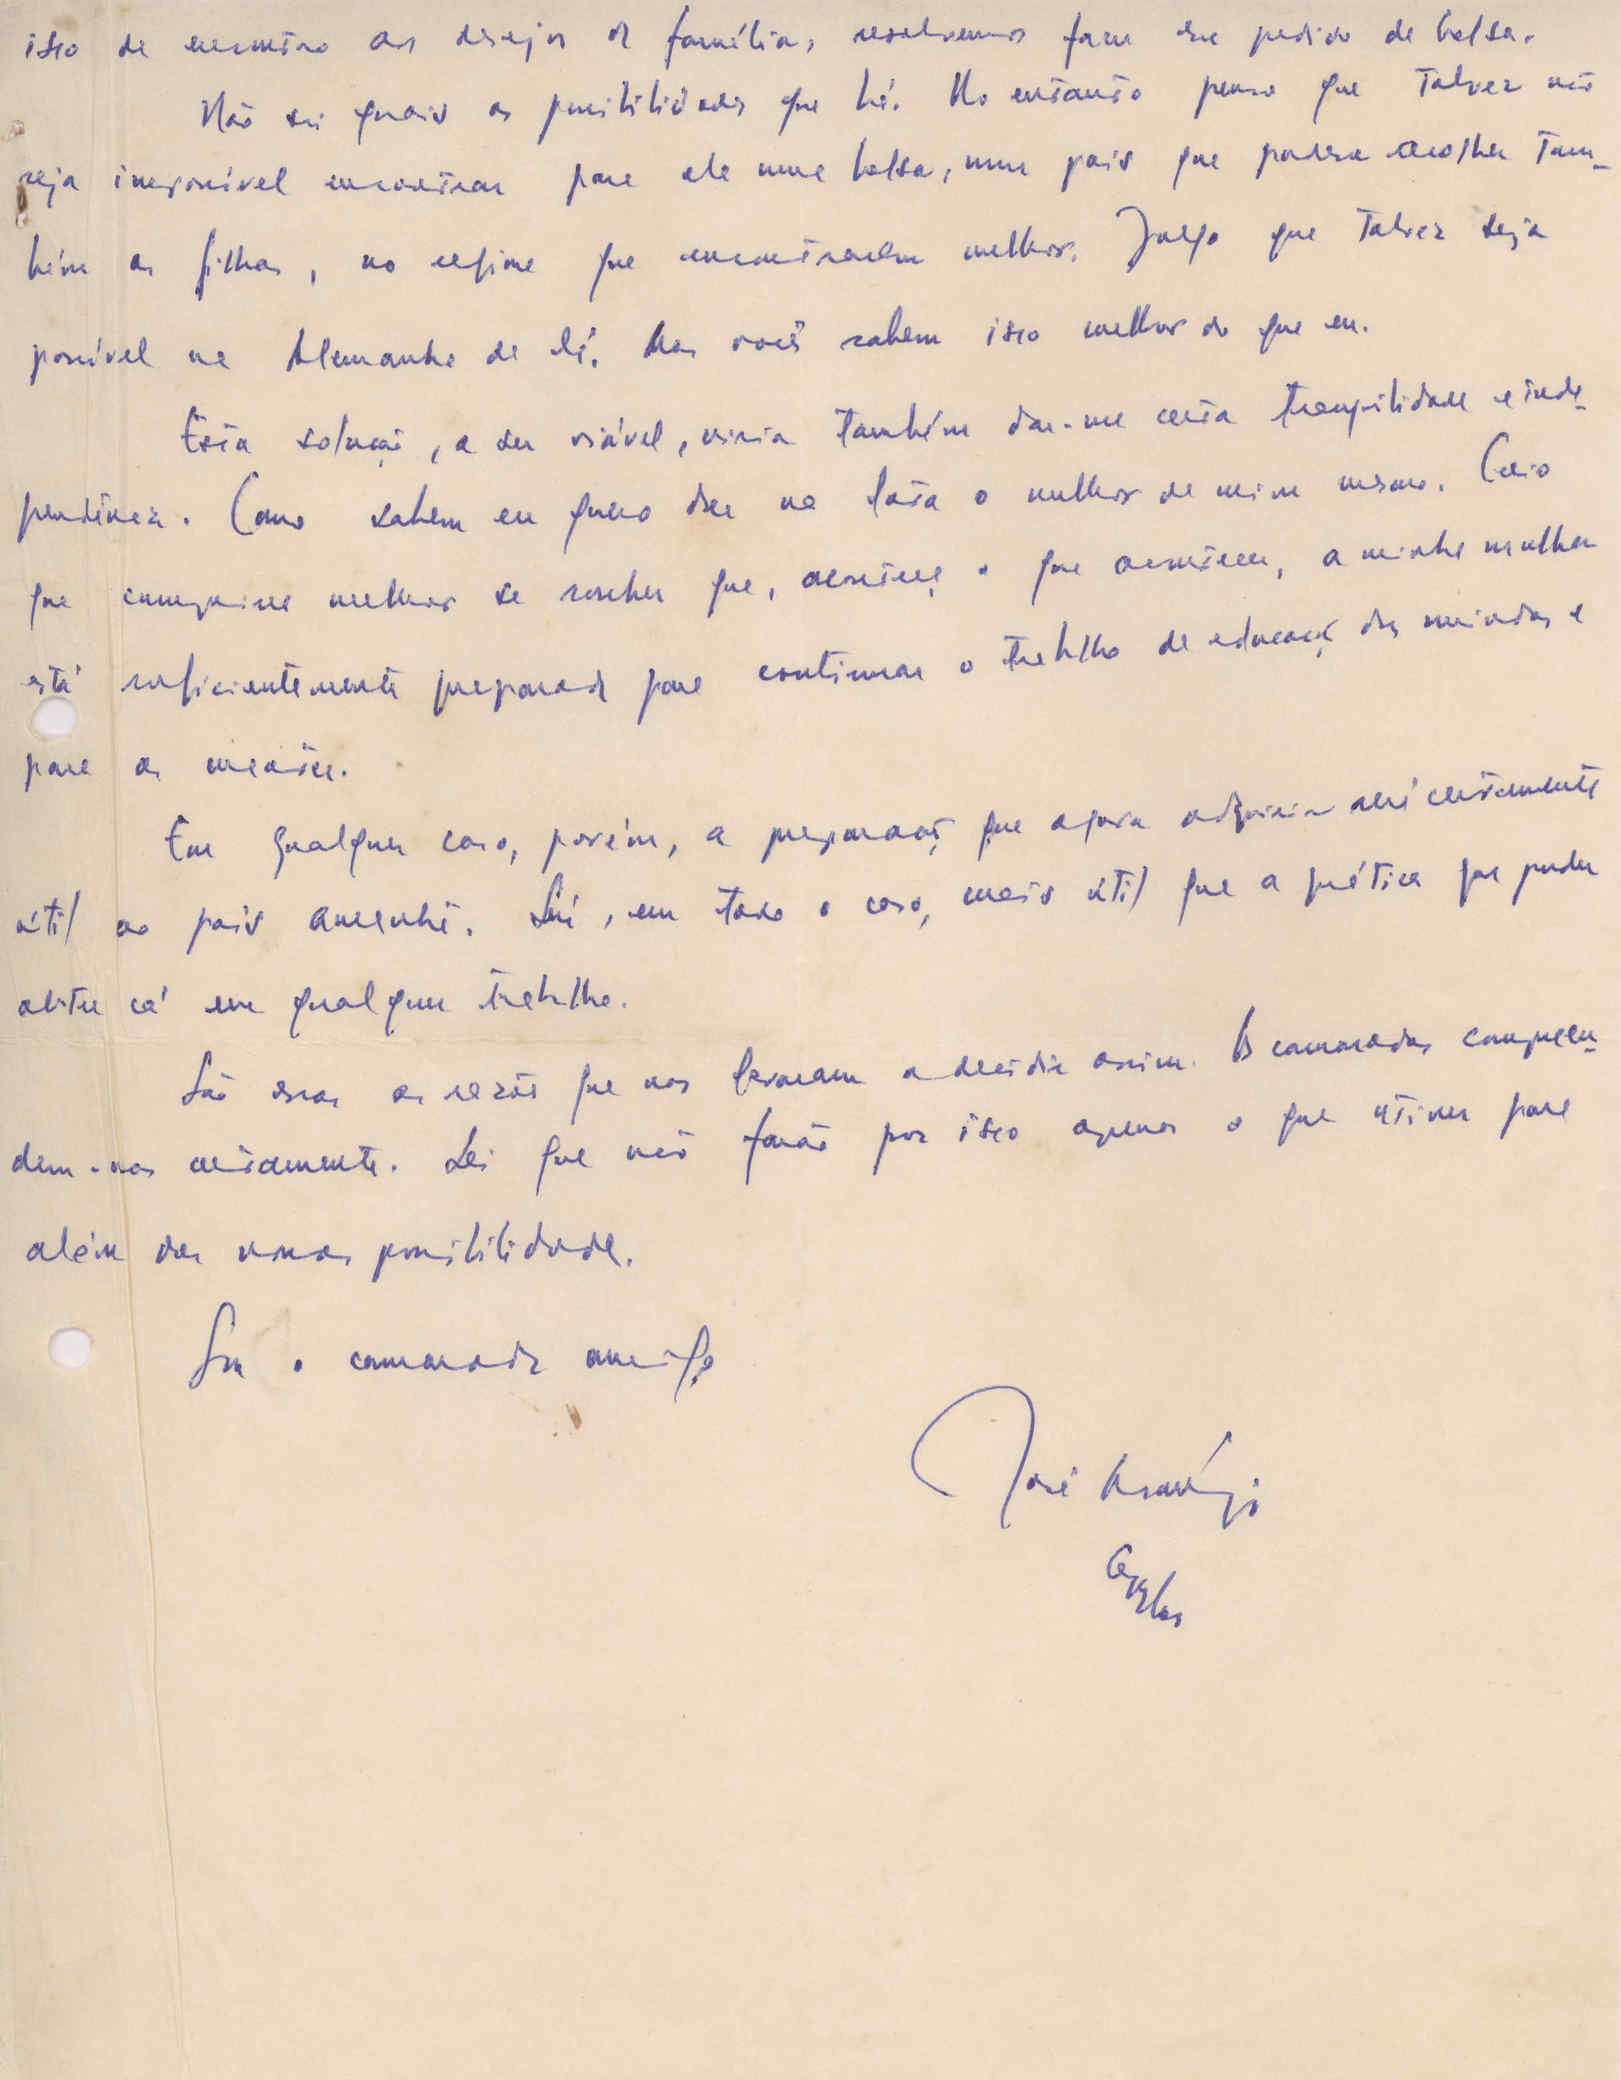 isso de encontro aos desejos da família, resolvemos fazer esse pedido de bolsa.
Não sei quais as possibilidades que há. No entanto penso que talvez não
seja impossível encontrar para ela uma bolsa, num país que pudesse acolher tam-
bém as filhas, no regime que encontrarem melhor. Julgo que talvez seja
possível na Alemanha de lá. Mas vocês sabem isso melhor do que eu.
Esta solução, a ser viável, viria também dar-me certa tranquilidade e inde-
pendência. Como sabem eu quero dar na luta o melhor de mim mesmo. Creio
que cumprirei melhor se souber que, aconteça o que acontecer, a minha mulher
está suficientemente preparada para continuar o trabalho de educação das miúdas e
para as manter.
Em qualquer caso, porém, a preparação que agora adquirir será certamente
útil ao país amanhã. Será, em todo o caso, mais útil que a prática que puder
obter cá em qualquer trabalho.
São essas as razões que nos levaram a decidir assim. Os camaradas compreen-
dem-nos certamente. Sei que não farão por isso apenas o que estiver para
além das vossas possibilidades.
Sou o camarada amigo
José Araújo